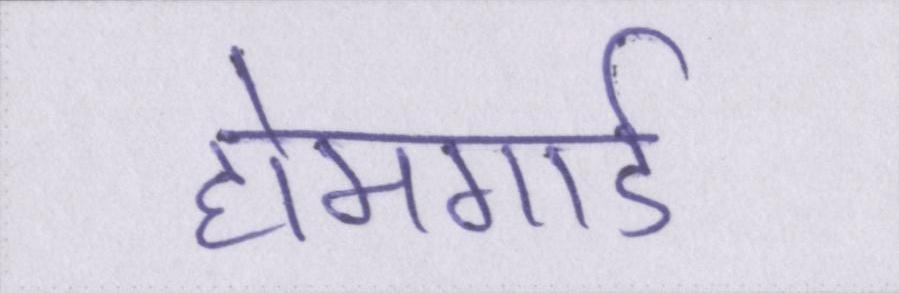 होमगार्ड